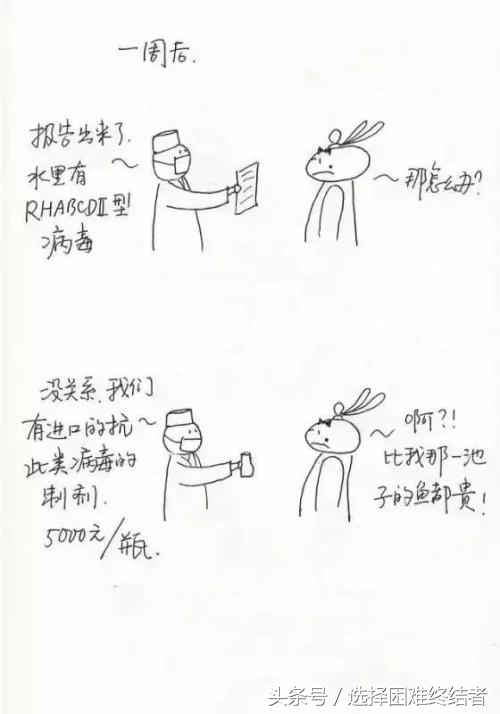 一周后.
报告出来了.
水里有
RHABCDII型
病毒
那怎么办?
没关系.我们
有进口的抗
此类病毒的
制剂.
5000元/瓶.
啊?!
比我那一池
子的鱼都贵!
头条号/选择困难终结者